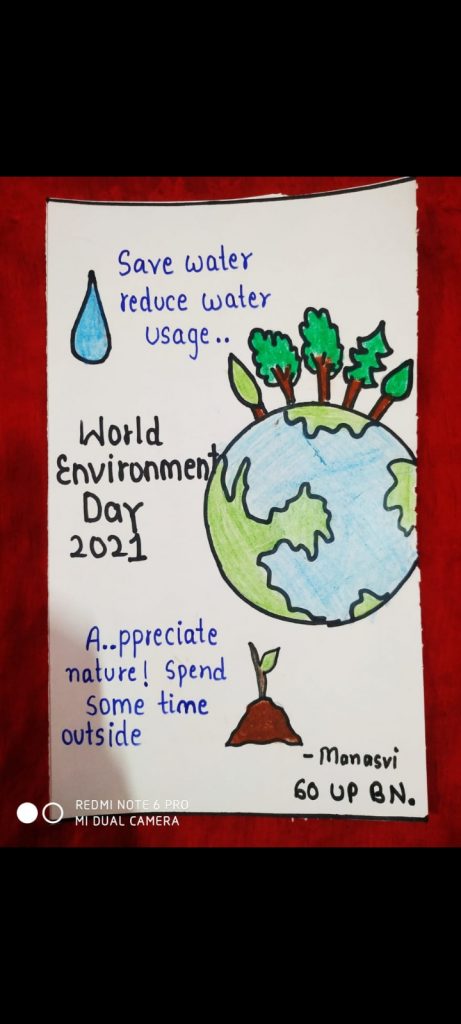 Save water
reduce water
usage..
World
Environment
Day
2021
A..ppreciate
nature! Spend
some time
outside
- Manasvi
60 UP BN.
REDMI NOTE 6 PRO
MI DUAL CAMERA